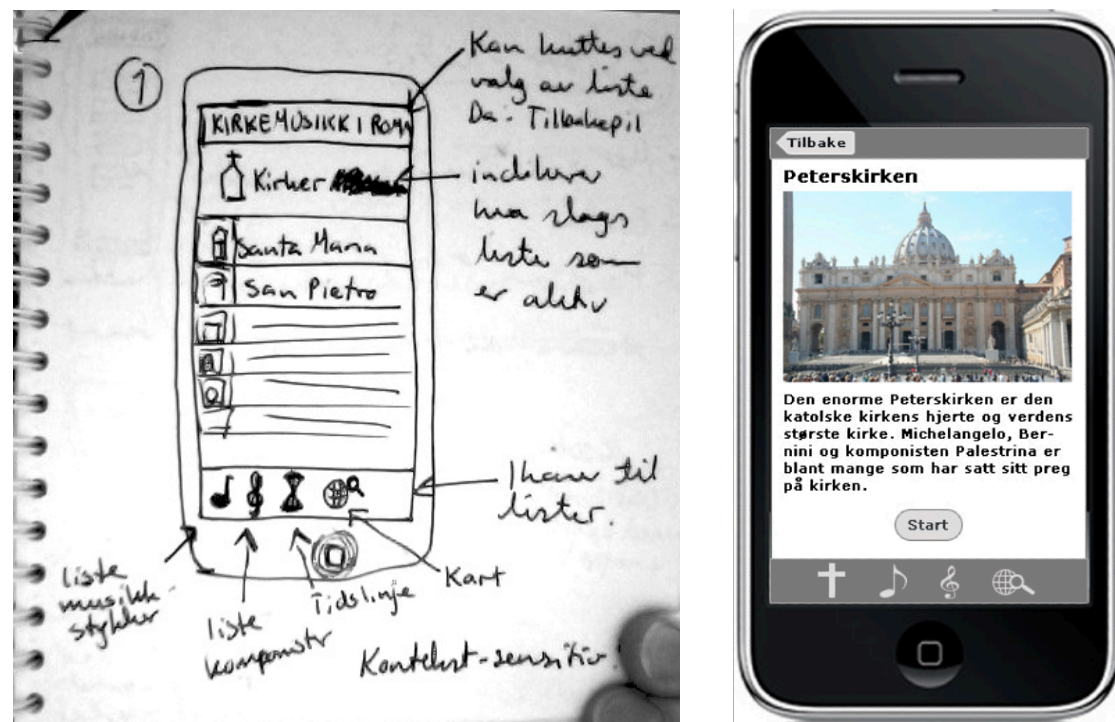 1
KIRKEMUSIKK I ROMA
Kirker
Santa Maria
San Pietro
Kan kuttes ved
valg av liste
Da: Tilbakepil
indikerer
hva slags
liste som
er aktiv
Ikoner til
lister.
Kart
Tidslinje
liste
komponister
liste
musikk-
stykker
Kontekst-sensitiv!
Tilbake
Peterskirken
Den enorme Peterskirken er den
katolske kirkens hjerte og verdens
største kirke. Michelangelo, Ber-
nini og komponisten Palestrina er
blant mange som har satt sitt preg
på kirken.
Start